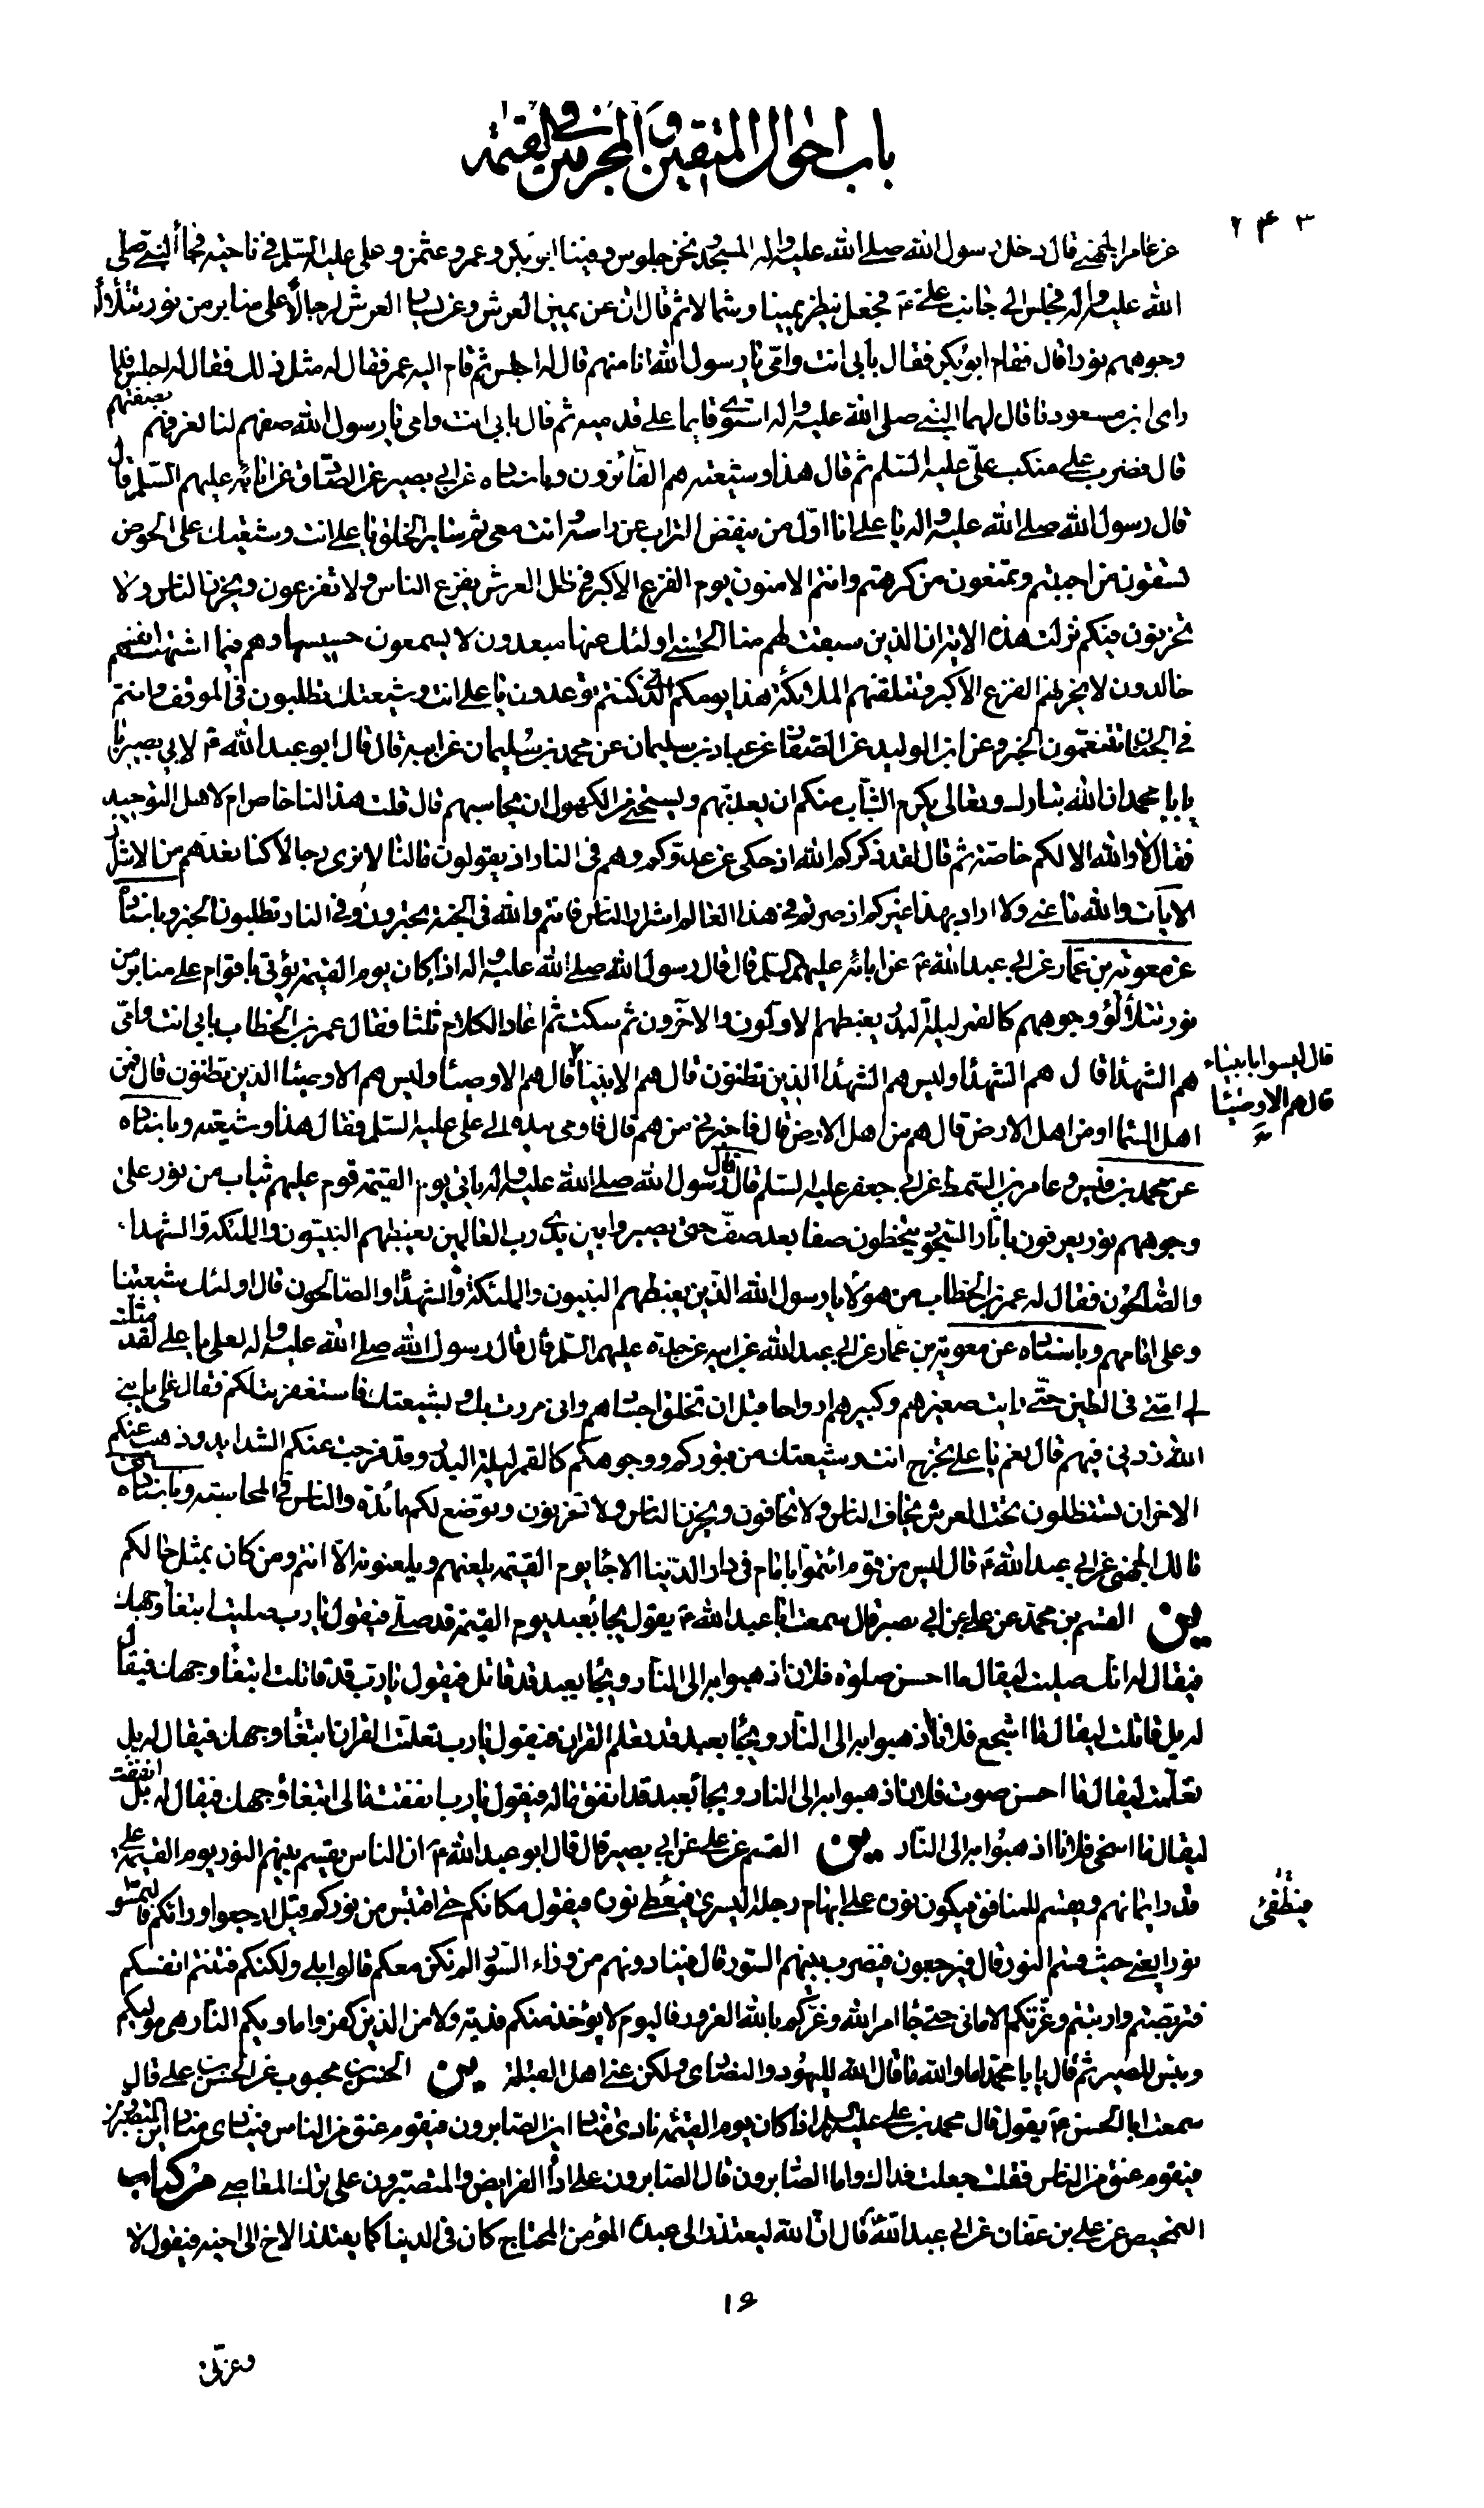 باب احوال المتقين و المجرمين في القيمة
٢٤٣
عن عامر الجهني قال دخل رسول الله صلى الله عليه واله المسجد ونحن جلوس وفينا ابو بكر وعمر وعثمن وعلي عليه السلم في ناحية فجاء النبي صلى
الله عليه واله فجلس الى جانب علي ع فجعل ينظر يمينا وشمالا ثم قال ان عن يمين العرش وعن يسار العرش لرجالا على منابر من نور يتلألأ
وجوههم نورا قال فقام ابو بكر فقال بابي انت وامي يا رسول الله انا منهم قال له اجلس ثم قام اليه عمر فقال له مثل ذلك فقال له اجلس فلما
راى ابن مسعود ما قال لهما النبي صلى الله عليه واله استوى قايما على قدميه ثم قال بابي انت وامي يا رسول الله صفهم لنا نعرفهم بصفتهم
قال فضرب على منكب علي عليه السلم ثم قال هذا وشيعته هم الفائزون وباسناده عن ابي بصير عن الصادق عن ابائه عليهم السلم قال
قال رسول الله صلى الله عليه واله يا علي انا اول من ينفض التراب عن راسه وانت معي ثم سائر الخلق يا علي انت وشيعتك على الحوض
تسقون من احببتم وتمنعون من كرهتم وانتم الامنون يوم الفزع الاكبر في ظل العرش يفزع الناس ولا تفزعون ويحزن الناس ولا
تحزنون فيكم نزلت هذه الاية ان الذين سبقت لهم منا الحسنى اولئك عنها مبعدون لا يسمعون حسيسها وهم فيما اشتهت انفسهم
خالدون لا يحزنهم الفزع الاكبر وتتلقهم الملائكة هذا يومكم الذي كنتم توعدون يا علي انت وشيعتك تطلبون في الموقف وانتم
في الجنان تتنعمون الخبر وعن ابن الوليد عن الصفار عن عباد بن سليمان عن محمد بن سليمان عن ابيه قال قال ابو عبد الله ع لابي بصير يا
يا با محمد ان الله تبارك وتعالى يكرم الشاب منكم ان يعذبهم ويستحيي من الكهول ان يحاسبهم قال قلت هذا لنا خاص ام لاهل التوحيد
فقال لا والله الا لكم خاصة ثم قال لقد ذكركم الله اذ حكى عن عدوكم وهم في النار اذ يقولون ما لنا لا نرى رجالا كنا نعدهم من الاشرار
الايات والله ما عنى ولا اراد بهذا غيركم اذ صرتم في هذا العالم اشرار الناس فانتم والله في الجنة تحبرون وفي النار تطلبون الخبر وباسناده
عن معوية بن عمار عن ابي عبد الله ع عن ابائه عليهم السلم قال قال رسول الله صلى الله عليه واله اذا كان يوم القيمة يؤتى باقوام على منابر من
نور تتلألؤ وجوههم كالقمر ليلة البدر يغبطهم الاولون والاخرون ثم سكت ثم اعاد الكلام ثلثا فقال عمر بن الخطاب بابي انت وامي
هم الشهداء قال هم الشهداء وليس هم الشهداء الذين تظنون قال هم الانبياء قال هم الاوصياء وليس هم الاوصياء الذين تظنون قال فمن
قال ليسوا بانبياء
قال هم الاوصياء
اهل السماء او من اهل الارض قال هم من اهل الارض قال فاخبرني من هم قال فاومى بيده الى علي عليه السلم فقال هذا وشيعته وباسناده
عن محمد بن قيس وعامر بن السمط عن ابي جعفر عليه السلم قال قال رسول الله صلى الله عليه واله ياتي يوم القيمة قوم عليهم ثياب من نور على
وجوههم نور يعرفون باثار السجود يتخطون صفا بعد صف حتى يصيروا بين يدي رب العالمين يغبطهم النبيون والملئكة والشهداء
والصالحون فقال له عمر بن الخطاب من هؤلاء يا رسول الله الذين يغبطهم النبيون والملئكة والشهداء والصالحون قال اولئك شيعتنا
وعلي امامهم وباسناده عن معوية بن عمار عن ابي عبد الله عن ابيه عن جده عليهم السلم قال قال رسول الله صلى الله عليه واله لعلي يا علي لقد مثلت
لي امتي في الطين حتى رايت صغيرهم وكبيرهم ارواحا قبل ان تخلق اجسادهم واني مررت بك وبشيعتك فاستغفرت لكم فقال علي يا نبي
الله زدني فيهم قال نعم يا علي تخرج انت وشيعتك من قبوركم ووجوهكم كالقمر ليلة البدر وقد فرجت عنكم الشدايد وذهبت عنكم
الاحزان تستظلون تحت العرش يخاف الناس ولا تخافون ويحزن الناس ولا تحزنون وتوضع لكم مائدة والناس في المحاسبة وباسناده
مالك الجهني عن ابي عبد الله ع قال ليس من قوم ائتموا بامام في دار الدنيا الا جاء يوم القيمة يلعنهم ويلعنونه الا انتم ومن كان بمثل حالكم
ين القسم بن محمد عن علي عن ابي بصير قال سمعت ابا عبد الله ع يقول يجاء بعبد يوم القيمة قد صلى فيقول يا رب صليت ابتغاء وجهك
فيقال له انك صليت ليقال ما احسن صلوة فلان اذهبوا به الى النار ويجاء بعبد قد قاتل فيقول يا رب قد قاتلت ابتغاء وجهك فيقال
له بل قاتلت ليقال ما اشجع فلانا اذهبوا به الى النار ويجاء بعبد قد تعلم القران فيقول يا رب تعلمت القران ابتغاء وجهك فيقال له بل
تعلمت ليقال ما احسن صوت فلان اذهبوا به الى النار ويجاء بعبد قد انفق ماله فيقول يا رب انفقت مالي ابتغاء وجهك فيقال له بل انفقت
ليقال ما اسخى فلانا اذهبوا به الى النار ين القسم عن علي عن ابي بصير قال قال ابو عبد الله ع ان الناس يقسم بينهم النور يوم القيمة على
قدر ايمانهم ويقسم للمنافق فيكون نوره على ابهام رجله اليسرى فيعطى نوره فيقول مكانكم حتى اقتبس من نوركم قيل ارجعوا وراءكم فالتمسوا
فينطفئ
نورا يعني حيث قسم النور قال فيرجعون فيضرب بينهم السور قال فينادونهم من وراء السور الم نكن معكم قالوا بلى ولكنكم فتنتم انفسكم
وتربصتم وارتبتم وغرتكم الاماني حتى جاء امر الله وغركم بالله الغرور فاليوم لا يؤخذ منكم فدية ولا من الذين كفروا ماويكم النار هي موليكم
وبئس المصير ثم قال يا با محمد اما والله ما قال الله لليهود والنصارى ولكن عنى اهل القبلة ين الحسن بن محبوب عن الحسن بن علي قال
سمعت ابا الحسن ع يقول قال محمد بن علي عليه السلم اذا كان يوم القيمة نادى مناد اين الصابرون فيقوم عنق من الناس فينادي مناد اين المتصبرون
فيقوم عنق من الناس فقلت جعلت فداك واما الصابرون قال الصابرون على اداء الفرايض والمتصبرون على ترك المعاصي من كتاب
التمحيص عن علي بن عفان عن ابي عبد الله ع قال ان الله ليعتذر الى عبده المؤمن المحتاج كان في الدنيا كما يعتذر الاخ الى اخيه فيقول لا
١٦
وعزتي